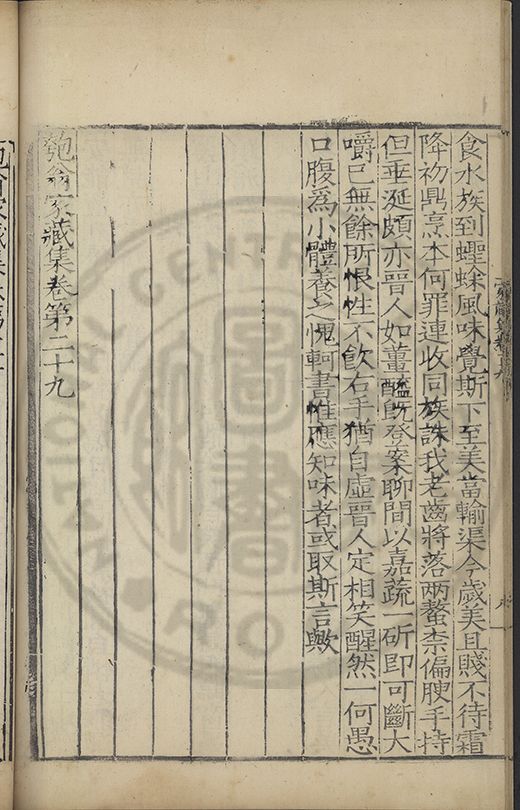 食水族到蟶蛑風味覺斯下至美當輸渠今歲美且賤不待霜
降初鼎烹本何罪連收同族誅我老齒將落兩螯柰偏腴手持
但垂涎頗亦晉人如薑醯旣登案聊間以嘉蔬一斫即可斷大
嚼已無餘所恨性不飲右手猶自虛晉人定相笑醒然一何愚
口腹爲小體養之愧軻書惟應知味者或取斯言歟
匏翁家藏集卷第二十九